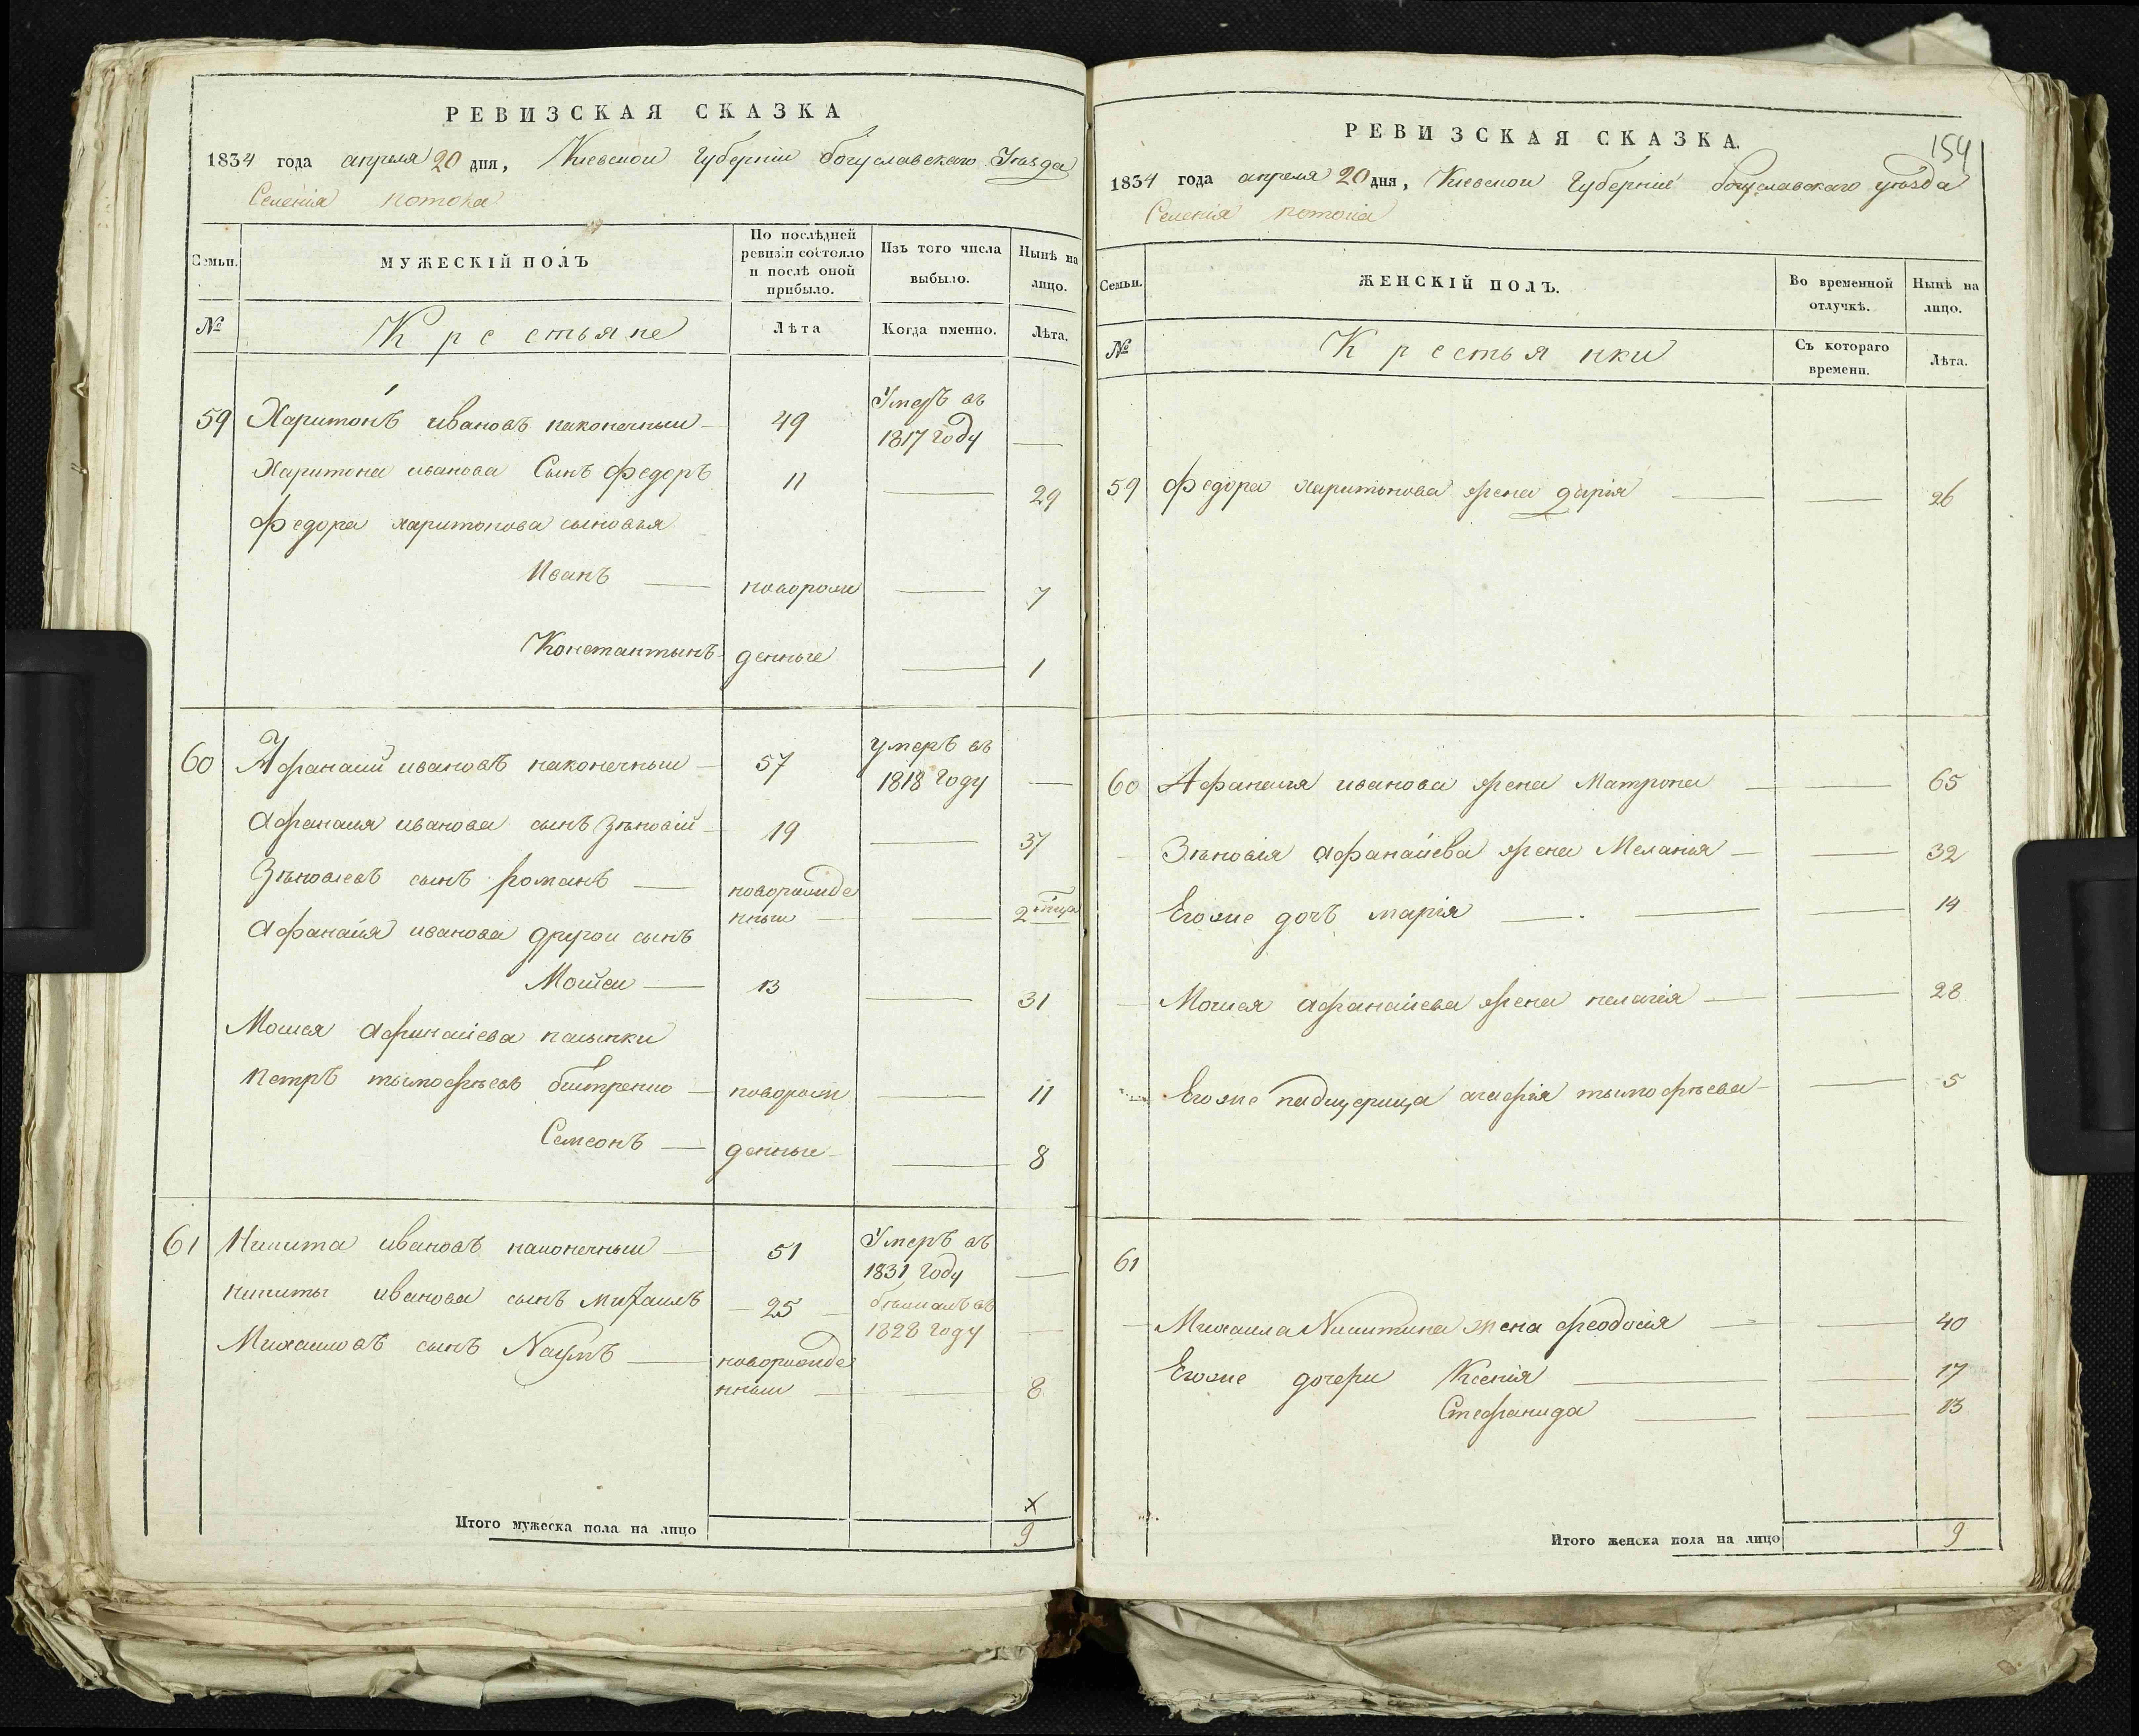 РЕВИЗСКАЯ СКАЗКА
1834 года апреля 20 дня, Киевской Губерніи богуславского Уѣзда
Селенія потока
Семьи.
МУЖЕСКІЙ ПОЛЪ
По послѣдней ревизіи состояло и послѣ оной прибыло.
Изъ того числа выбыло.
Нынѣ на лицо.
№
Крестьяне
Лѣта
Когда именно.
Лѣта.
59 Харитонъ ивановъ наконечный 49 Умеръ въ 1817 году —
Харитона иванова Сынъ федоръ 11 — 29
федора харитонова сыновья
Иванъ — новорож — 7
Константынъ денные — 1
60 Афанасий ивановъ наконечный 57 умеръ въ 1818 году —
Афанасия иванова сынъ Зѣновій 19 — 37
Зѣновіевъ сынъ романъ — новорожде
нный — 2 мѣца
Афанасія иванова другой сынъ
Моисей — 13 — 31
Моисея Афанасіева пасынки
петръ тымофѣевъ — новорож — 11
Семеонъ — денные — 8
61 Никита ивановъ наконечный 51 Умеръ въ 1831 году —
никиты иванова сынъ михаилъ — 25 — бѣжалъ въ 1828 году —
Михаиловъ сынъ Наумъ — новорожде
нный — — 8
х
Итого мужеска пола на лицо 9
154
РЕВИЗСКАЯ СКАЗКА.
1834 года апреля 20 дня, Киевской Губерніи богуславского уѣзда
Селенія потока
Семьи.
ЖЕНСКІЙ ПОЛЪ.
Во временной отлучкѣ.
Нынѣ на лицо.
№
Крестьянки
Съ котораго времени.
Лѣта.
59 федора харитонова жена дарія — — 26
60 Афанасія иванова жена Матрона — — 65
— Зѣновія афанасіева жена Меланія — — 32
Егоже дочъ марія — — — 14
— Моисея афанасіева жена пелагія — — 28
Егоже падщерица агафія тымофѣева — — 5
61
— Михаила Никитина жена феодосія — — 40
Егоже дочери Ксенія — — 17
Стефанида — — 13
Итого женска пола на лицо 9